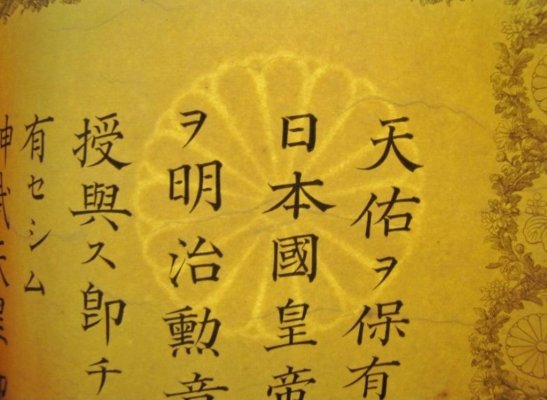 天佑ヲ保有
日本國皇帝
ヲ明治勳章
授與ス卽チ
有セシム
神武天皇